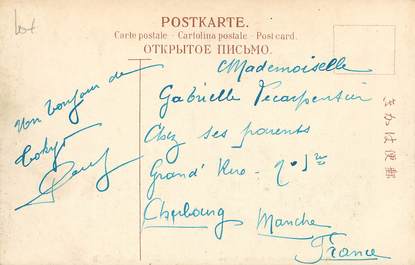 lot
POSTKARTE.
Carte postale – Cartolina postale – Post card.
ОТКРЫТОЕ ПИСЬМО.
Un bonjour de
Tokyo
Mademoiselle
Gabrielle Lecarpentier
Chez ses parents
Grand' Rue
Cherbourg Manche
France
きかは便郵